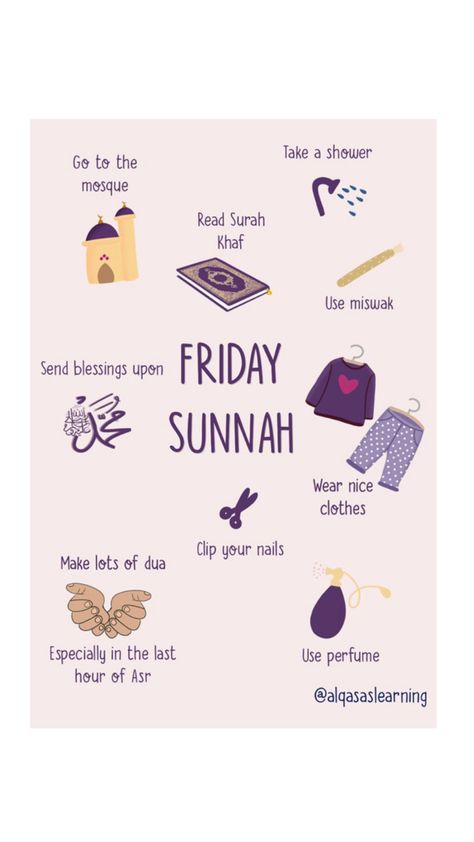 Go to the
mosque
Take a shower
Read Surah
Khaf
Use miswak
Send blessings upon
محمد ﷺ
FRIDAY
SUNNAH
Wear nice
clothes
Clip your nails
Make lots of dua
Especially in the last
hour of Asr
Use perfume
@alqasaslearning